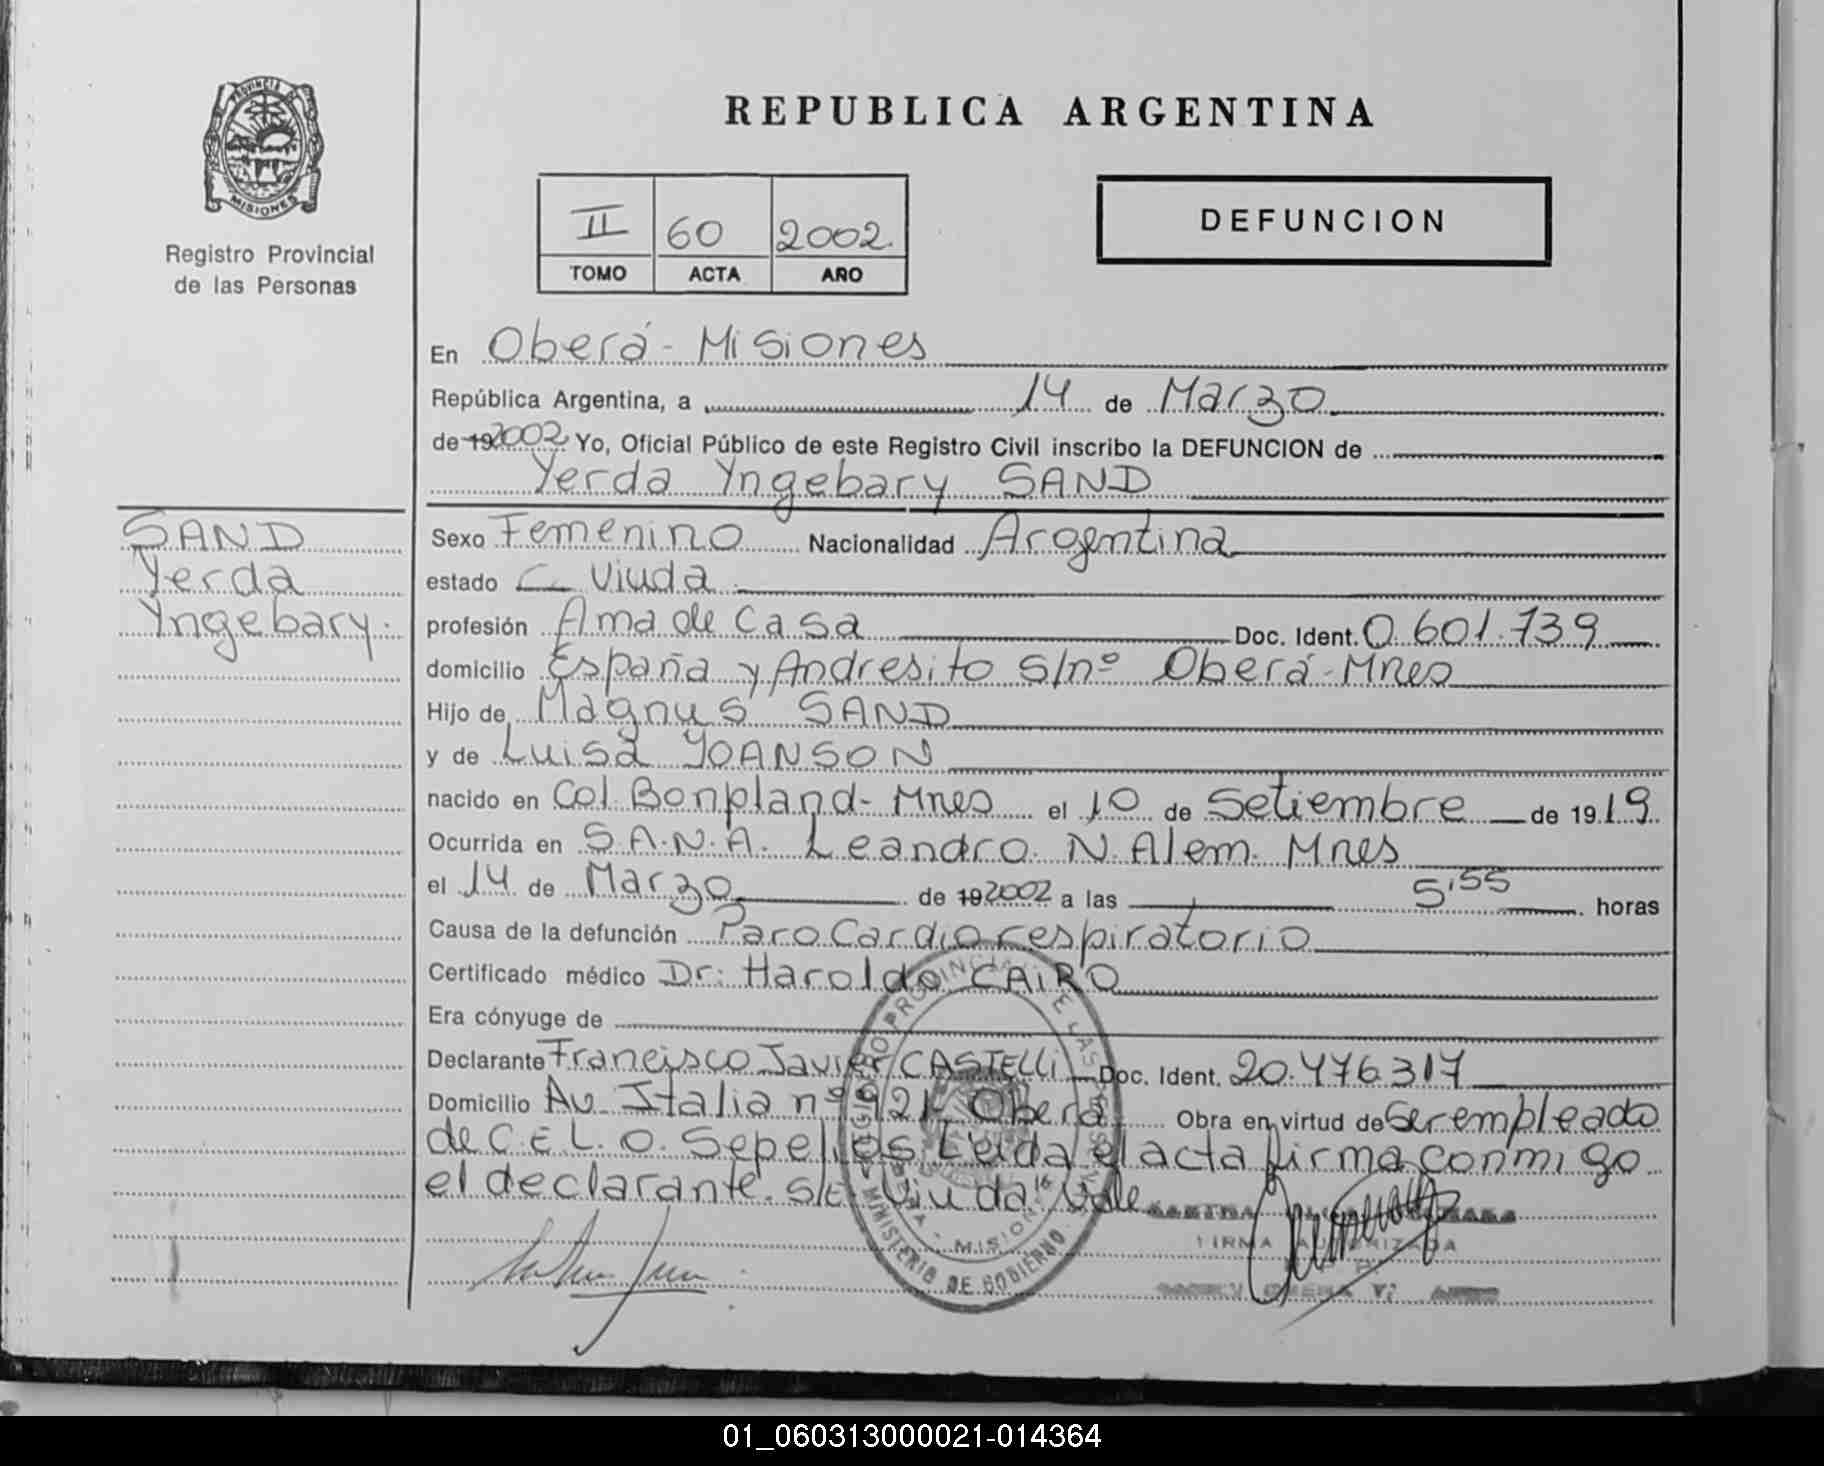 PROVINCIA DE
MISIONES
Registro Provincial
de las Personas
REPUBLICA ARGENTINA
II 60 2002.
TOMO ACTA AÑO
DEFUNCION
En Oberá - Misiones
República Argentina, a 14 de Marzo
de 19 2002 Yo, Oficial Público de este Registro Civil inscribo la DEFUNCION de
Yerda Yngebary SAND
SAND
Yerda
Yngebary.
Sexo Femenino Nacionalidad Argentina
estado C Viuda
profesión Ama de Casa Doc. Ident. 0.601.739
domicilio España y Andresito S/nº Oberá - Mnes
Hijo de Magnus SAND
y de Luisa YOANSON
nacido en Col. Bonpland - Mnes el 10 de Setiembre de 19 19.
Ocurrida en S.A.N.A. Leandro N. Alem. Mnes
el 14 de Marzo de 19 2002 a las 5'55 horas
Causa de la defunción Paro Cardiorespiratorio
Certificado médico Dr: Haroldo CAIRO
Era cónyuge de
Declarante Francisco Javier CASTELLI Doc. Ident. 20.476.317
Domicilio Av Italia nº 921 Oberá Obra en virtud de Ser empleado
de C.E.L.O. Sepelios Leida el acta firma conmigo
el declarante. S/E: "Viuda" Vale
FIRMA AUTORIZADA
MINISTERIO DE GOBIERNO
01_060313000021-014364